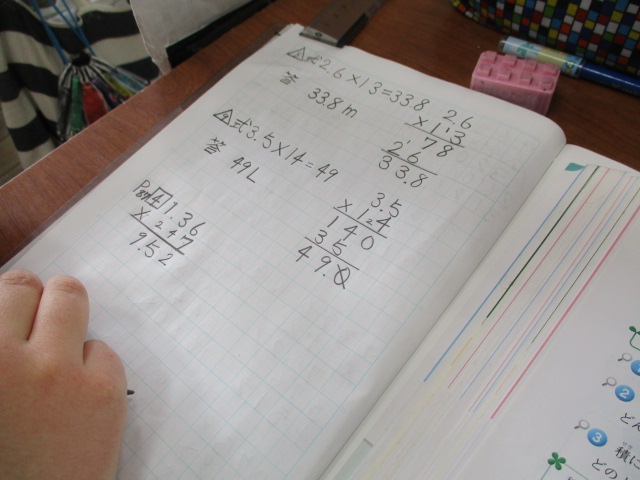 式2.6×13=33.8
答 33.8m
2.6
×13
78
26
33.8
式3.5×14=49
答 49L
3.5
×14
140
35
49.0
4 1.36
×7
9.52
1
2
3 積に
どの
どん